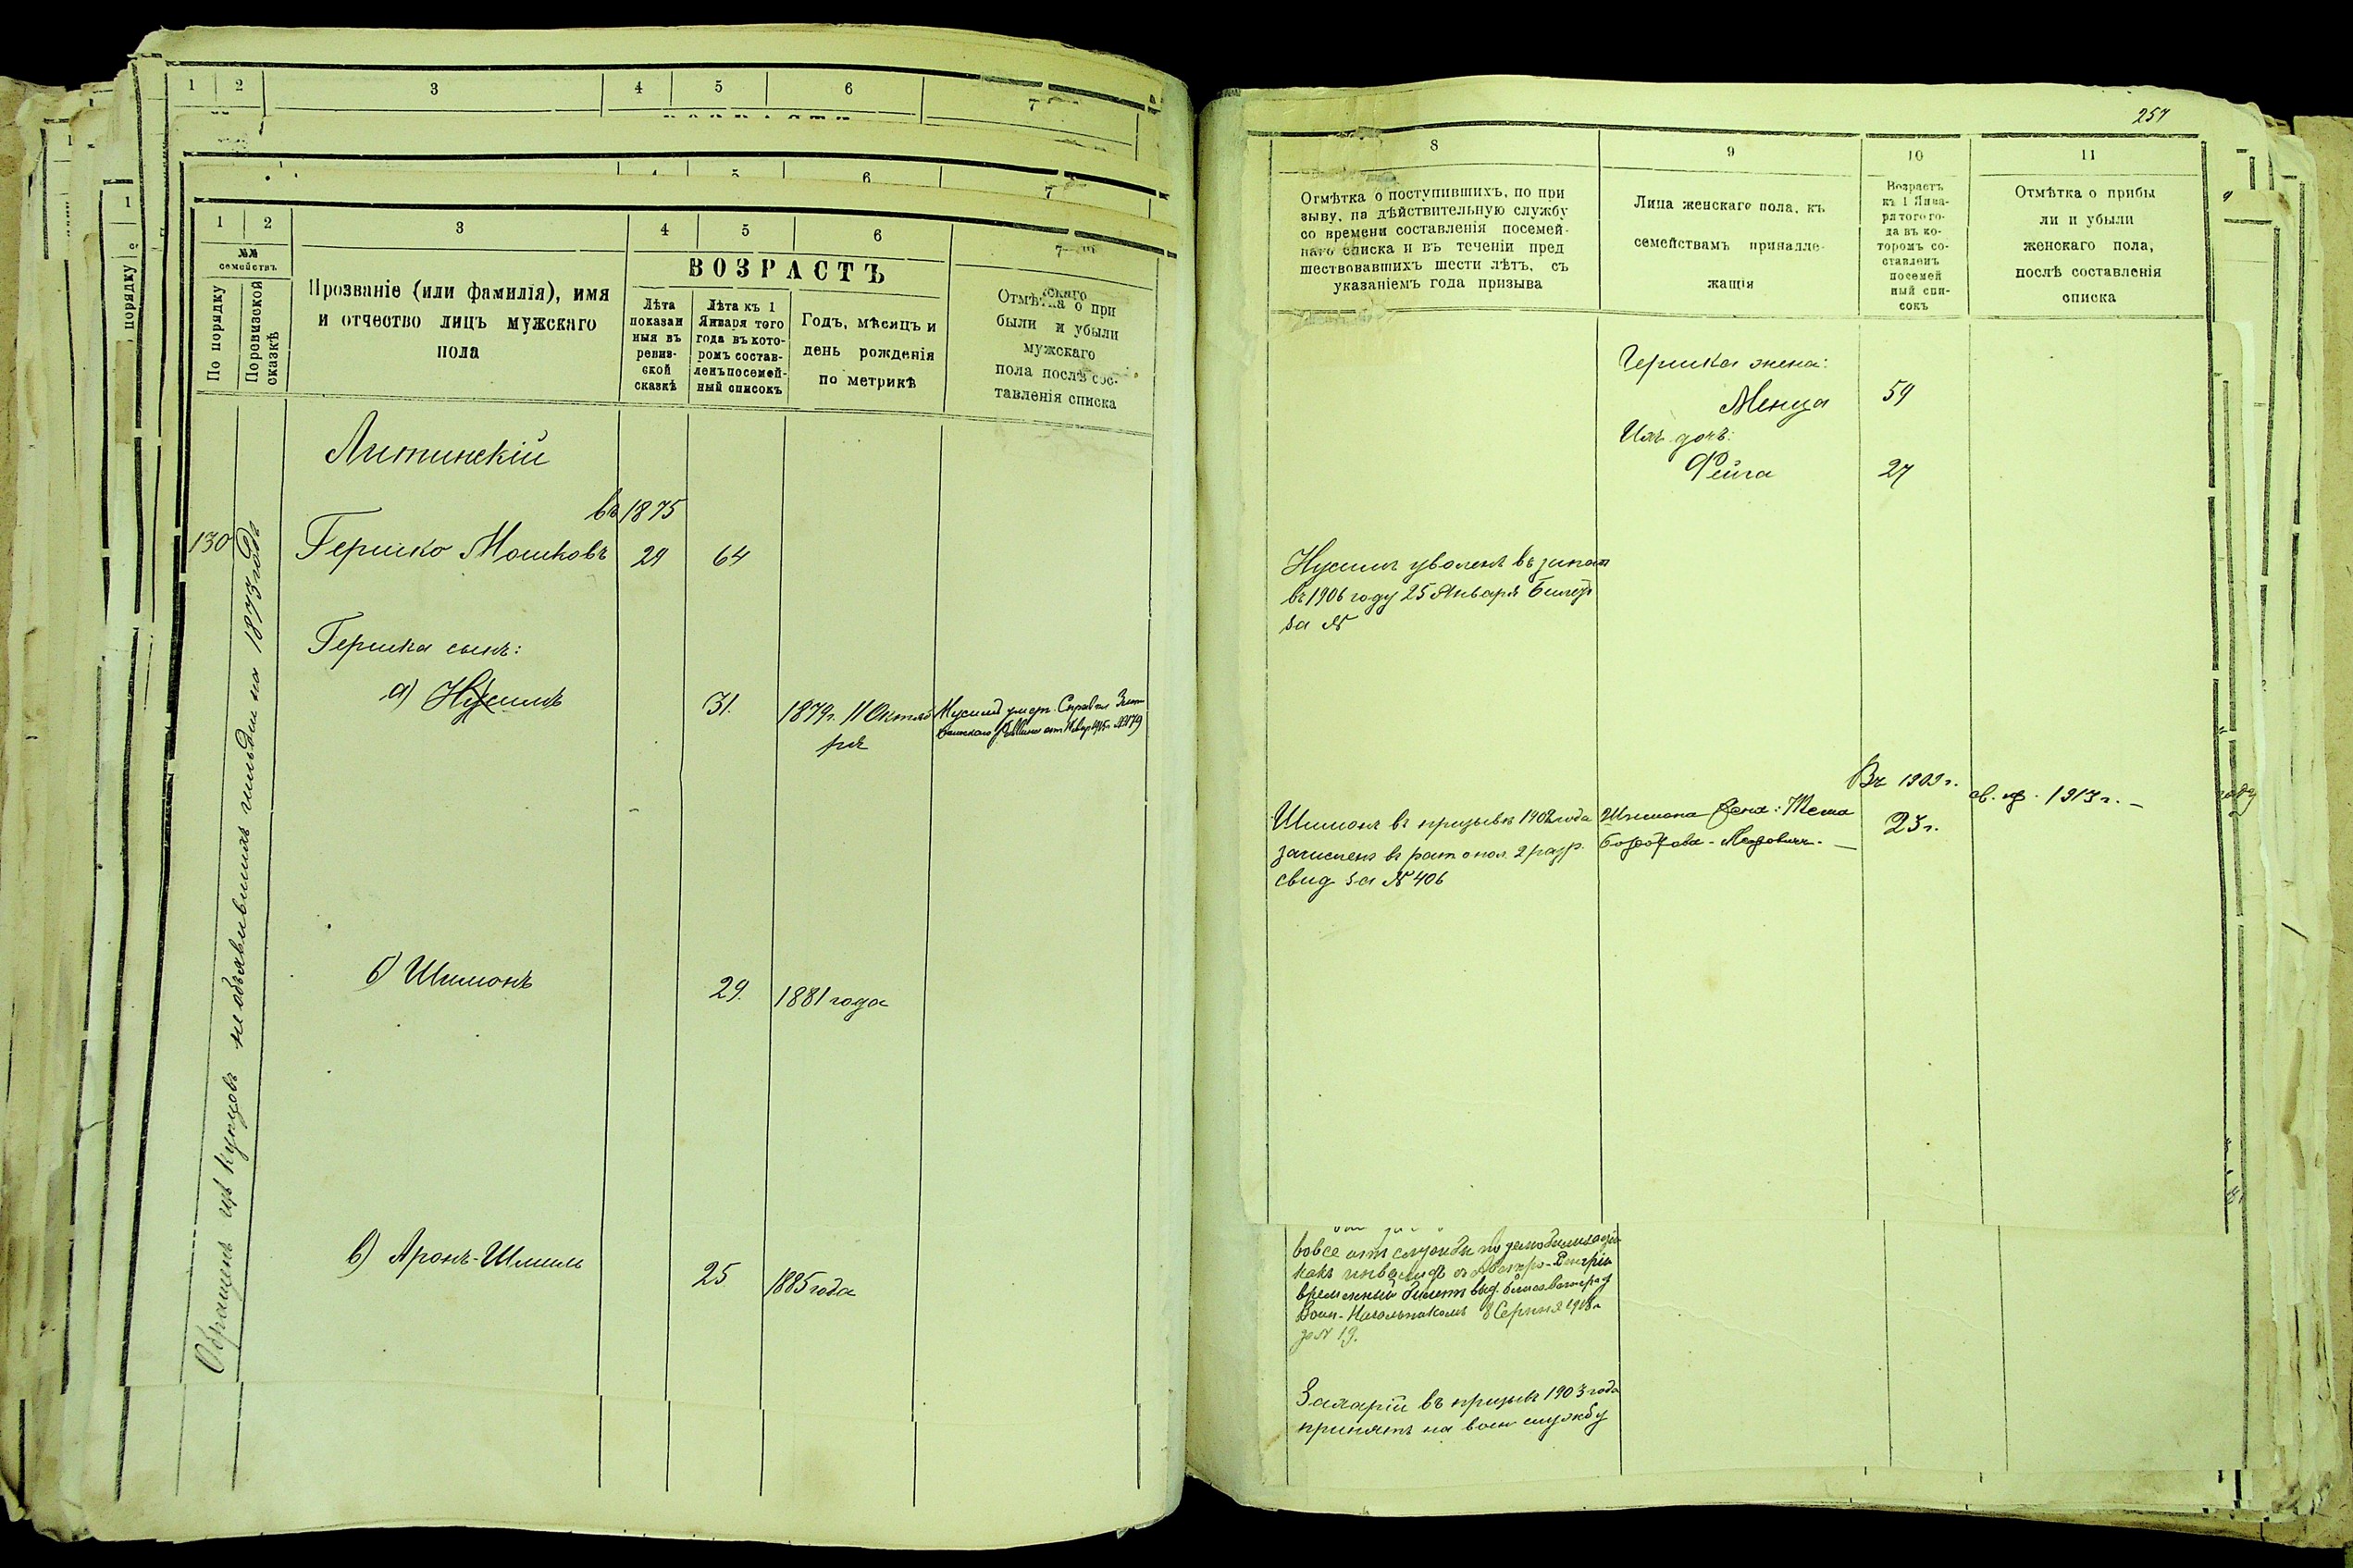 1 2 3 4 5 6 7
1 2 3 4 5 6 7
№№ семействъ
По порядку
По ревизской сказкѣ
Прозваніе (или фамилія), имя
и отчество лицъ мужскаго
пола
ВОЗРАСТЪ
Лѣта
показан
ныя въ
ревиз-
ской
сказкѣ
Лѣта къ 1
Января того
года въ кото-
ромъ состав-
ленъ посемей-
ный списокъ
Годъ, мѣсяцъ и
день рожденія
по метрикѣ
Отмѣтка о при
были и убыли
мужскаго
пола послѣ сос-
тавленія списка
Литинскій
въ 1875
130 Гершко Мошковъ 29 64
Гершка сынъ:
а) Нусимъ 31. 1879г. 11 Октяб
ря
Нусимъ умер.
б) Шимонъ 29. 1881 года
в) Аронъ-Шмиль 25 1885 года
Обращенъ изъ купцовъ необъявившихъ гильдіи на 1873 годъ
257
8 9 10 11
Отмѣтка о поступившихъ, по при
зыву, на дѣйствительную службу
со времени составленія посемей-
наго списка и въ теченіи пред
шествовавшихъ шести лѣтъ, съ
указаніемъ года призыва
Лица женскаго пола, къ
семействамъ принадле-
жащія
Возрастъ
къ 1 Янва-
ря того го-
да въ ко-
торомъ со-
ставленъ
посемей
ный спи-
сокъ
Отмѣтка о прибы
ли и убыли
женскаго пола,
послѣ составленія
списка
Гершка жена:
Менца 59
Ихъ дочь:
Фейга 27
Нусимъ уволенъ въ запас
въ 1906 году 25 Января билет
за №
Въ 1909 г.
1913 г. –
Шимонъ въ призывѣ 1902 года
зачисленъ въ рат опол. 2 разр.
свид за № 406
Шимона жена:
23 г.
вовсе отъ службы по демобилизаціи
какъ инвалидъ Австро-Венгріи
временный билетъ выд.
Воин. Начальникомъ 8 Серпня 1918 г.
за № 19.
Захарій въ призывѣ 1903 года
принятъ на воен службу